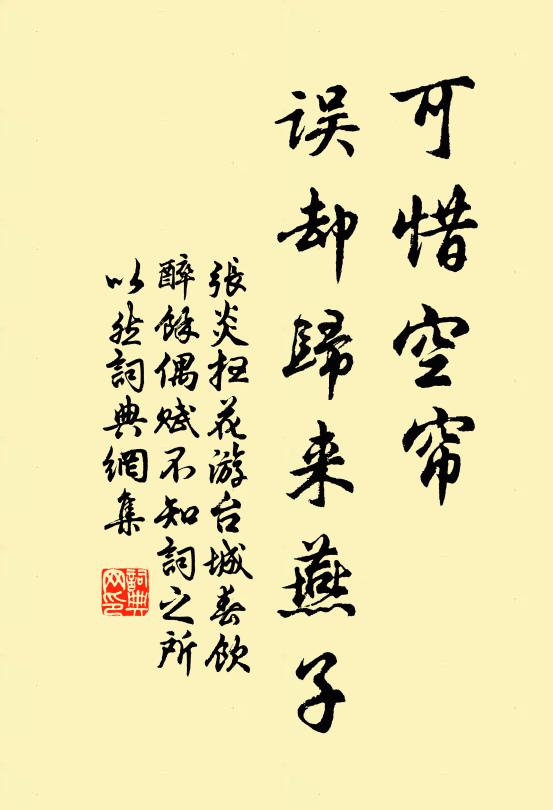 可惜空帘
误却歸来燕子
張炎扫花游台城春飲
醉餘偶赋不知詞之所
以然詞典網集
詞典
网印